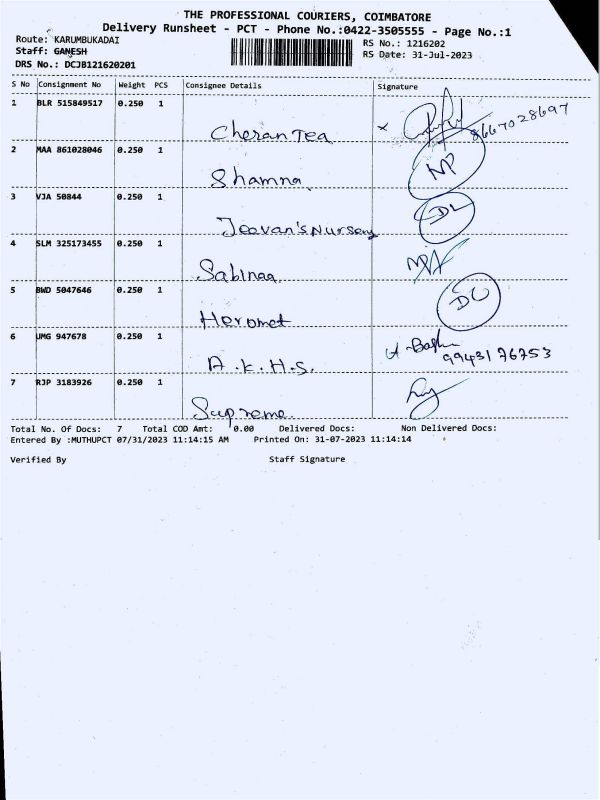 THE PROFESSIONAL COURIERS, COIMBATORE
Delivery Runsheet - PCT - Phone No.:0422-3505555 - Page No.:1
Route: KARUMBUKADAI
RS No.: 1216202
Staff: GANESH
RS Date: 31-Jul-2023
DRS No.: DCJB121620201
S No Consignment No Weight PCS Consignee Details Signature
1 BLR 515849517 0.250 1
Cheran Tea x 8667028697
2 MAA 861028046 0.250 1
Shamna NP
3 VJA 50844 0.250 1
Jeevan's Nursery DL
4 SLM 325173455 0.250 1
Sabinaa
5 BWD 5047646 0.250 1
Heromet
6 UMG 947678 0.250 1
A.K.H.S. 9943176753
7 RJP 3183926 0.250 1
Supreme
Total No. Of Docs: 7 Total COD Amt: 0.00 Delivered Docs: Non Delivered Docs:
Entered By :MUTHUPCT 07/31/2023 11:14:15 AM Printed On: 31-07-2023 11:14:14
Verified By Staff Signature